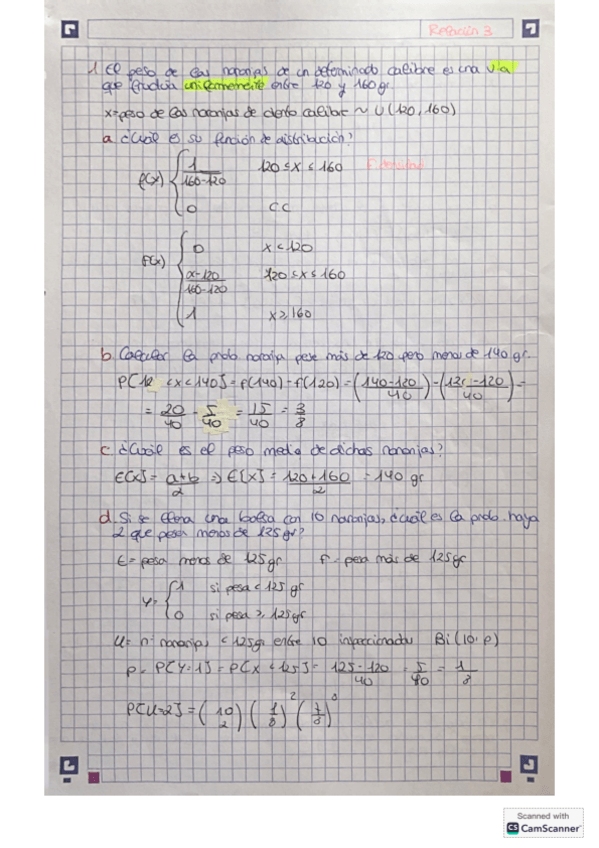 Relación 3
1. El peso de las naranjas de un determinado calibre es una v.a
que fluctúa uniformemente entre 120 y 160 gr.
x = peso de las naranjas de cierto calibre ~ U(120, 160)
a. ¿Cuál es su función de distribución?
f(x) { 1/(160-120) 120 ≤ x ≤ 160 F. densidad
0 CC
F(x) { 0 x < 120
(x-120)/(160-120) 120 ≤ x ≤ 160
1 x ≥ 160
b. Calcular la prob naranja pese más de 120 pero menos de 140 gr.
P[12 < x < 140] = F(140) - F(120) = ((140-120)/40) - ((12 -120)/40) =
= 20/40 - 5/40 = 15/40 = 3/8
c. ¿Cuál es el peso medio de dichas naranjas?
E[x] = (a+b)/2 ⇒ E[x] = (120+160)/2 = 140 gr
d. Si se llena una bolsa con 10 naranjas, ¿cuál es la prob. haya
2 que pesen menos de 125 gr?
E = pesa menos de 125 gr F = pesa más de 125 gr
Y = { 1 si pesa < 125 gr
0 si pesa ≥ 125 gr
U = nº naranjas < 125 gr entre 10 inspeccionadas Bi(10, p)
p = P[Y=1] = P[X < 125] = (125-120)/40 = 5/40 = 1/8
P[U=2] = (10 2) (1/8)^2 (7/8)^8
Scanned with
CS CamScanner